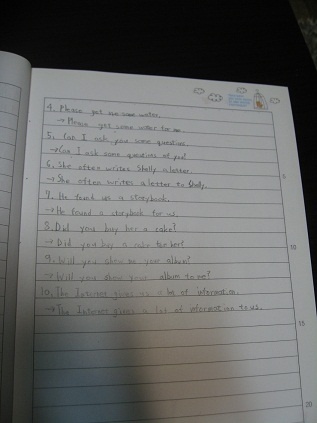 4. Please get me some water.
→ Please get some water for me.
5. Can I ask you some question.
→ Can I ask some questions of you?
6. She often writes Shelly a letter.
→ She often writes a letter to Shelly.
7. He found us a storybook.
→ He found a storybook for us.
8. Did you buy her a cake?
→ Did you buy a cake for her?
9. Will you show me your album?
→ Will you show your album to me?
10. The Internet gives us a lot of information.
→ The Internet gives a lot of information to us.
5
10
15
20